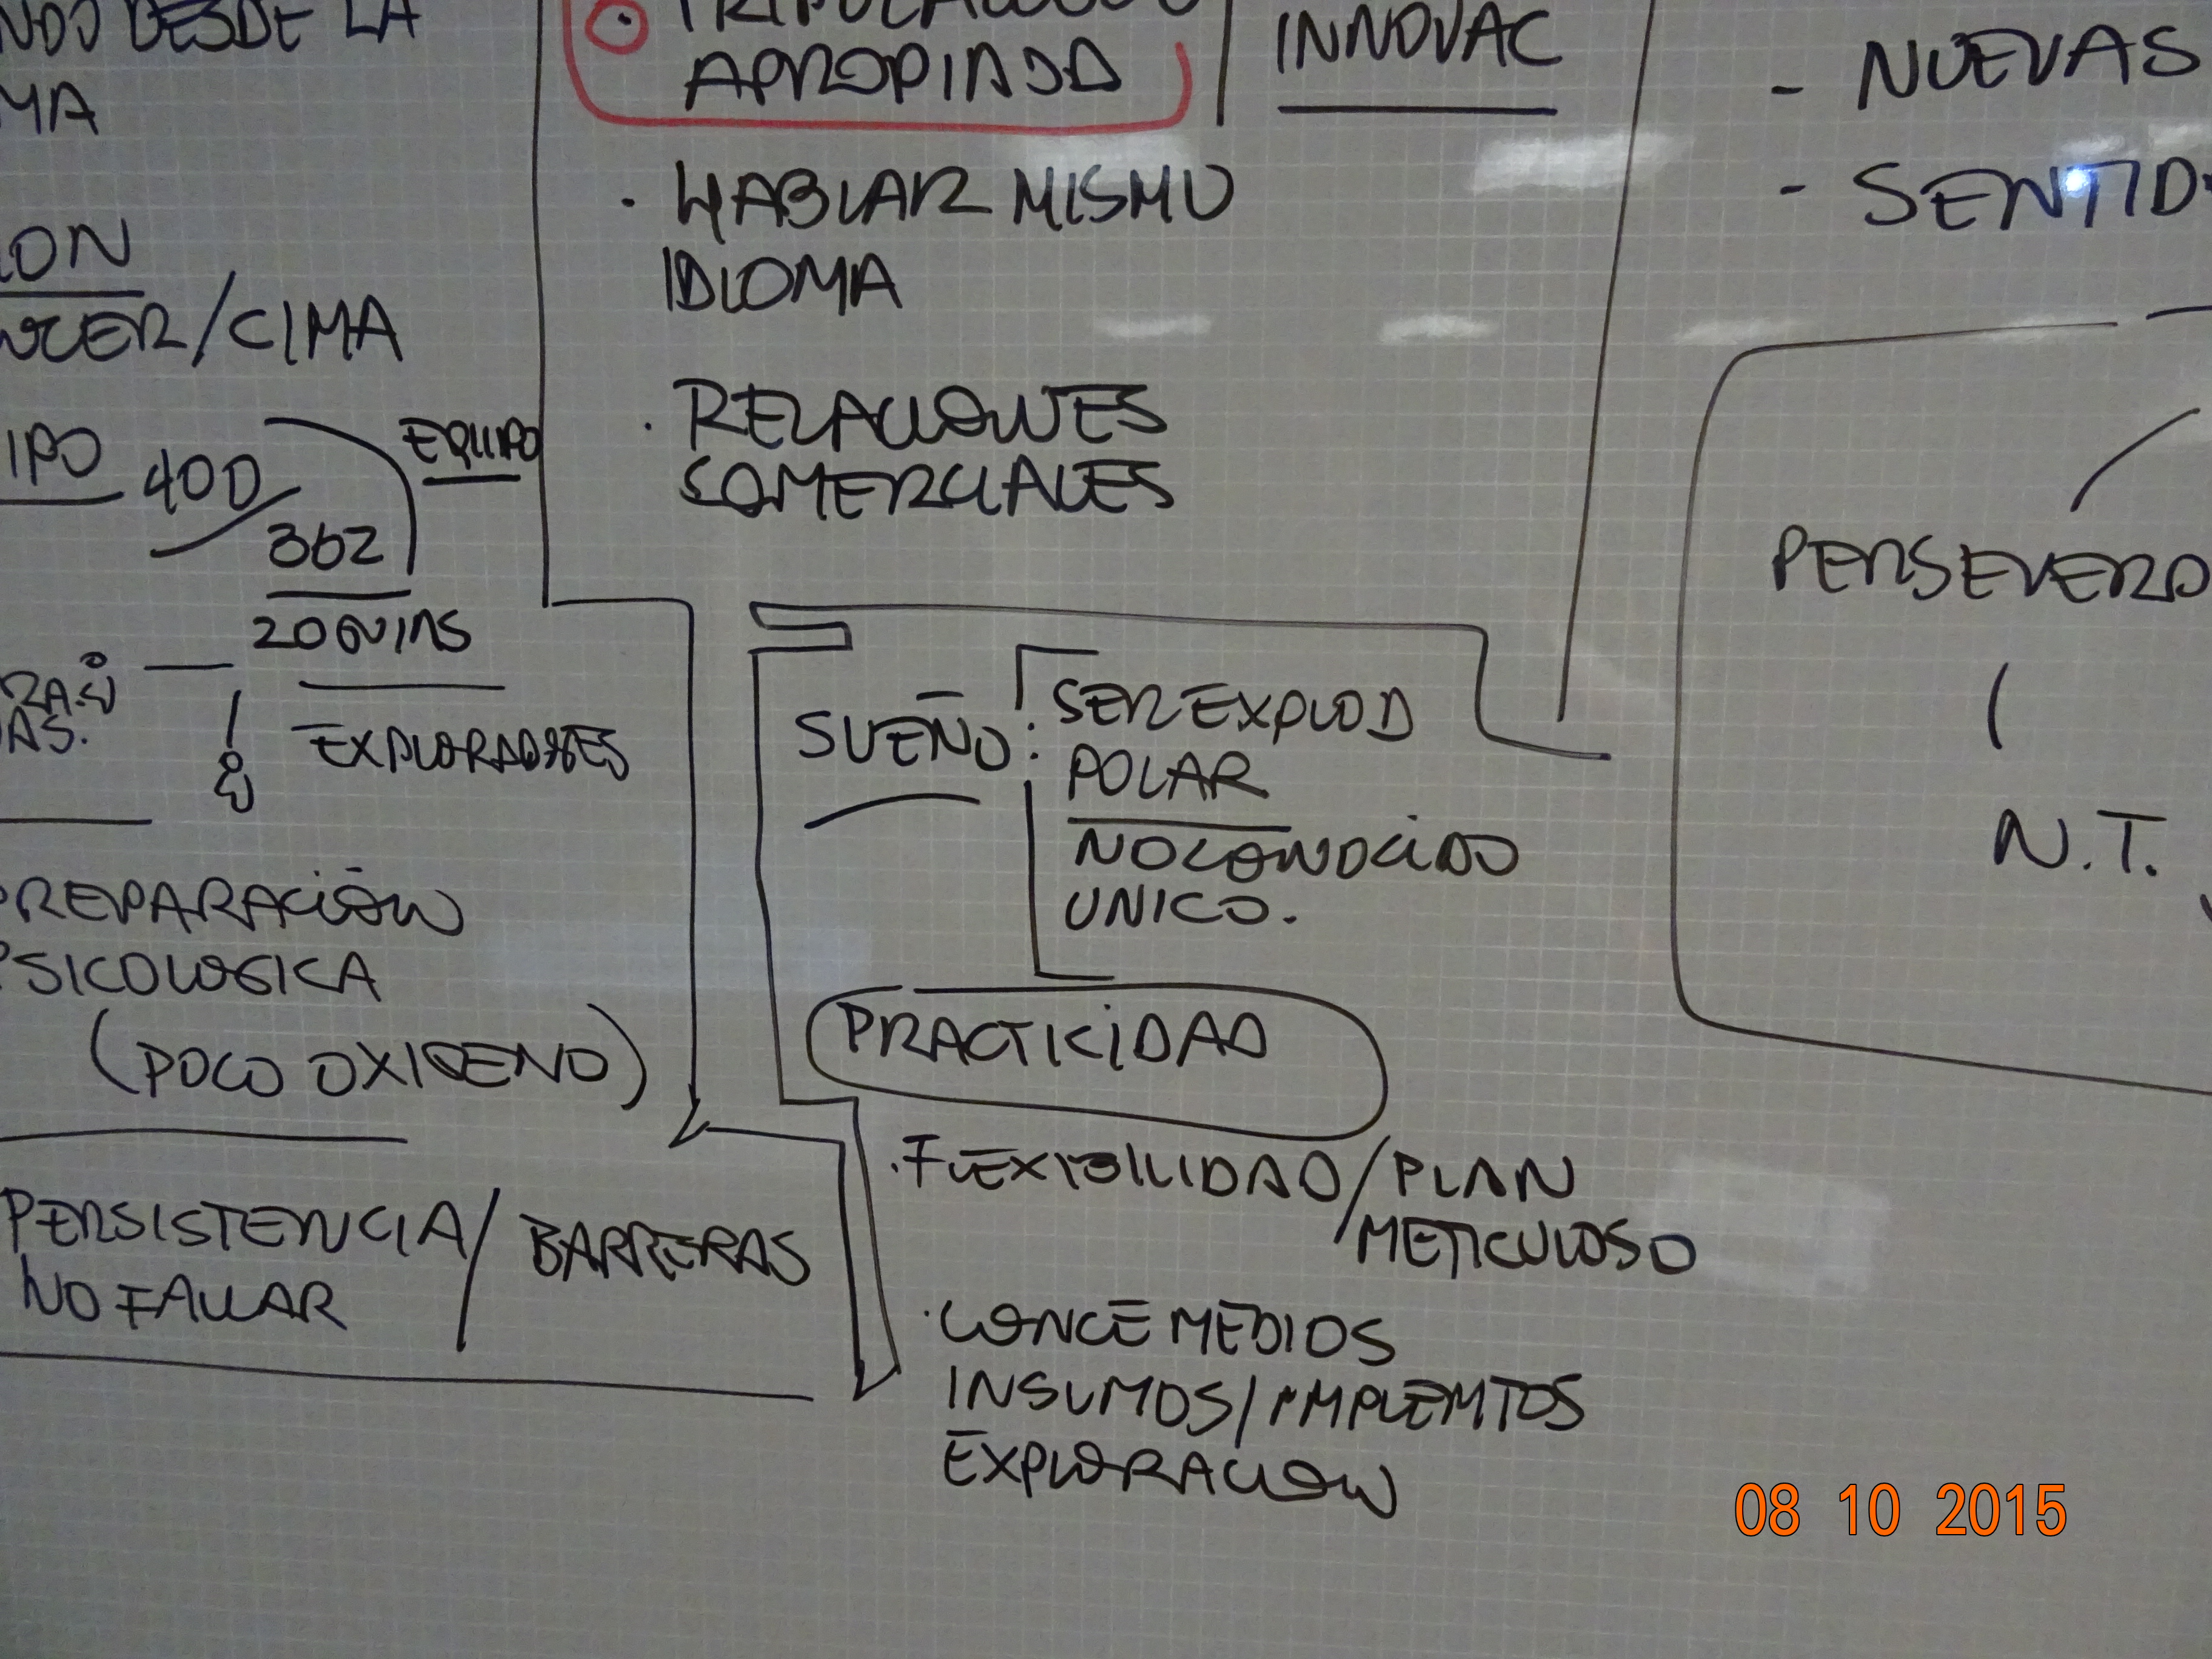 DESDE LA
MA
ION
/CIMA
IPO 400 EQUIPO
362
20
EXPLORADORES
PREPARACIÓN
PSICOLOGICA
(POCO OXIGENO)
PERSISTENCIA/ BARRERAS
NO FALLAR
APROPIADA
· HABLAR MISMO
IDIOMA
· RELACIONES
COMERCIALES
INNOVAC
SUEÑO: SER EXPLOD
POLAR
NO CONOCIDO
UNICO.
PRACTICIDAD
· FLEXIBILIDAD/PLAN
METICULOSO
· CONCE MEDIOS
INSUMOS/IMPLEMTOS
EXPLORACION
- NUEVAS
- SENTID
PERSEVERA
(
N.T.
08 10 2015